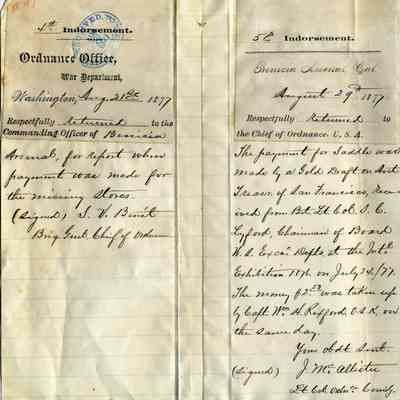 4th Indorsement.
Ordnance Office,
War Department,
Washington, Aug. 21st 1877
Respectfully returned to the
Commanding Officer of Benicia
Arsenal, for report when
payment was made for
the missing stores.
(Signed) S. V. Benét
Brig Genl. Chief of Ordnance
5th Indorsement.
Benicia Arsenal Cal.
August 29th 1877
Respectfully returned to
the Chief of Ordnance, U. S. A.
The payment for Saddle was
made by a Gold Draft on Asst
Treasr. of San Francisco, rece-
ived from Bvt. Lt Col. S. C.
Lyford, Chairman of Board
U. S. Exec. Depts, at the Intl.
Exhibition 1876 on July 24/77.
The money was taken up
by Capt Wm. A. Rexford, O.S.K. on
the same day.
Your obdt Servt.
(Signed) J. McAllister
Lt Col Ordnce Comdg.